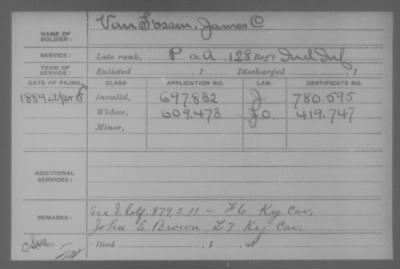 NAME OF SOLDIER: Van Fossen, James C
SERVICE: Late rank, P Co. A, 128 Reg't Ind Inf
TERM OF SERVICE: Enlisted , 1 Discharged , 1
DATE OF FILING. CLASS. APPLICATION NO. LAW. CERTIFICATE NO.
1889 Apr 5 Invalid, 697.832 J 780.595
Widow, 609.473 J.O. 419.747
Minor,
ADDITIONAL SERVICES:
REMARKS: See 879211 - F 6 Ky Cav.
John E Brown, L 7 Ky Cav.
Died , 1 , at